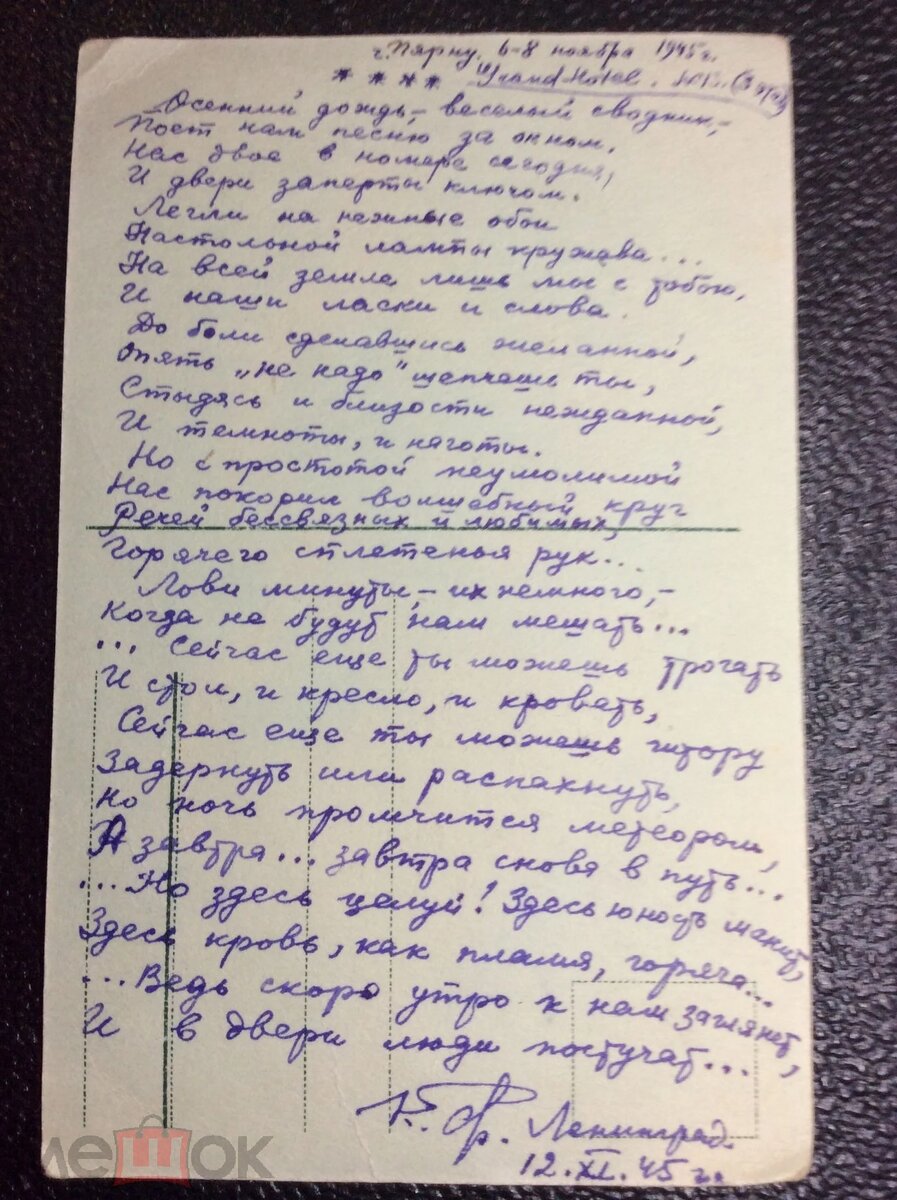 г. Пярну, 6-8 ноября 1945 г.
**** "Grand Hotel".
Осенний дождь,– веселый сводник,–
Поет нам песню за окном,
Нас двое в номере сегодня,
И двери заперты ключом.
Легли на нежные обои
Настольной лампы кружева...
На всей земле лишь мы с тобою,
И наши ласки и слова.
До боли сделавшись желанной,
Опять „не надо" шепчешь ты,
Стыдясь и близости нежданной,
И темноты, и наготы.
Но с простотой неумолимой
Нас покорил волшебный круг
Речей бессвязных и любимых,
Горячего сплетенья рук...
Лови минуты,– их немного,–
Когда не будут нам мешать...
... Сейчас еще ты можешь трогать
И стол, и кресло, и кровать,
Сейчас еще ты можешь штору
Задернуть или распахнуть,
Но ночь промчится метеором,
А завтра... завтра снова в путь...
... Но здесь целуй! Здесь юность манит,
Здесь кровь, как пламя, горяча...
... Ведь скоро утро к нам заглянет,
И в двери люди постучат...
Ленинград.
12.XI.45 г.
мешок